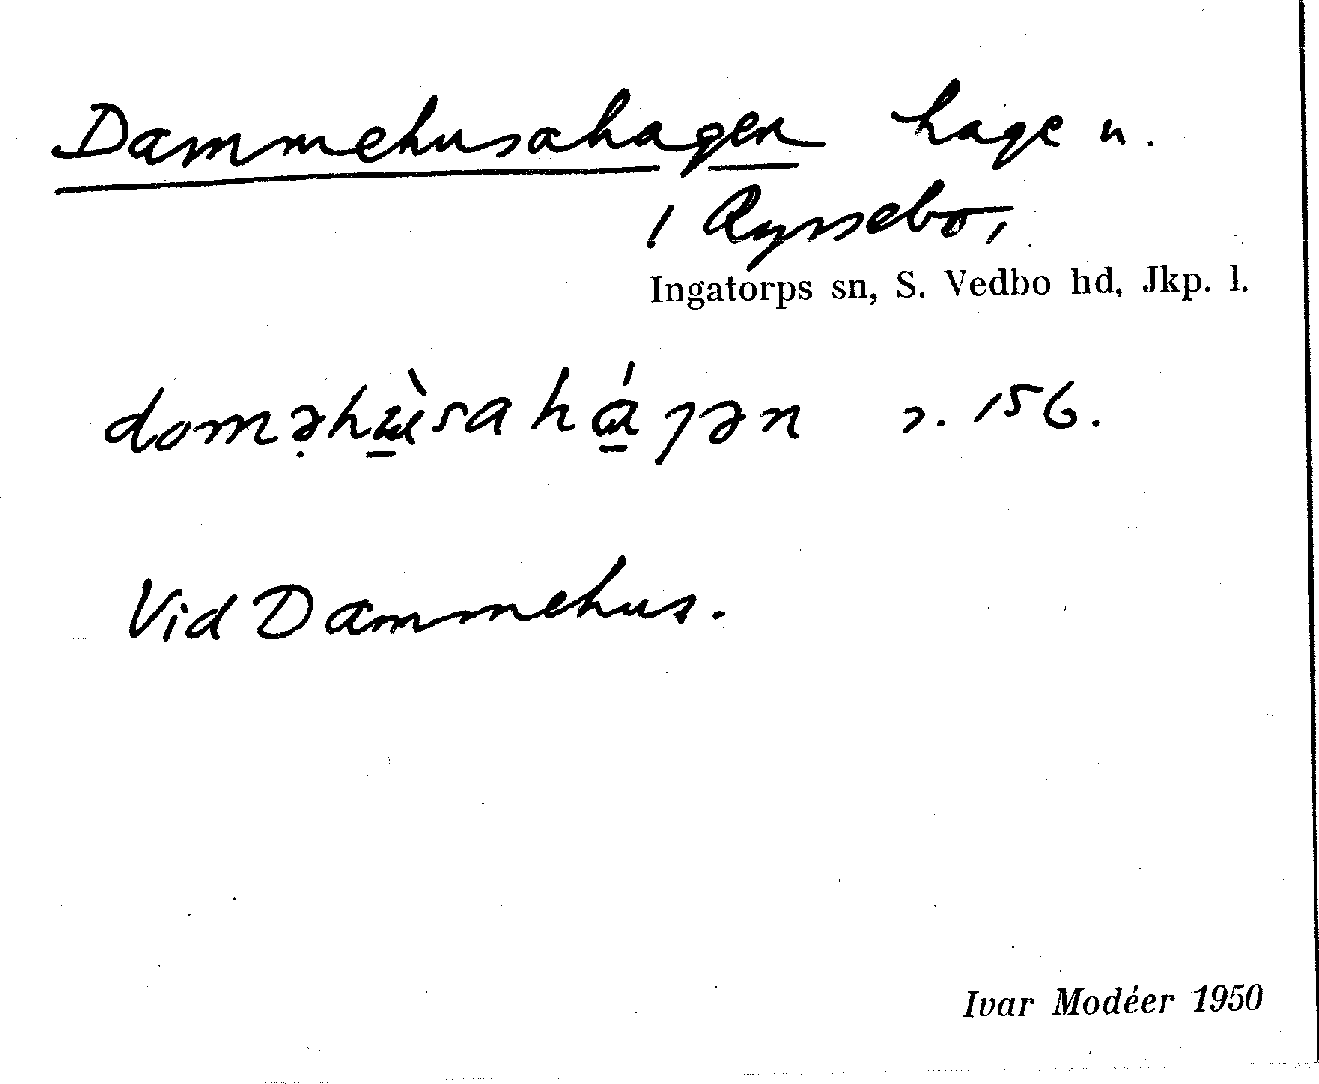 Dammehusahagen hage n.
i Ryssebo,
Ingatorps sn, S. Vedbo hd, Jkp. l.
s. 156.
Vid Dammehus.
Ivar Modéer 1950